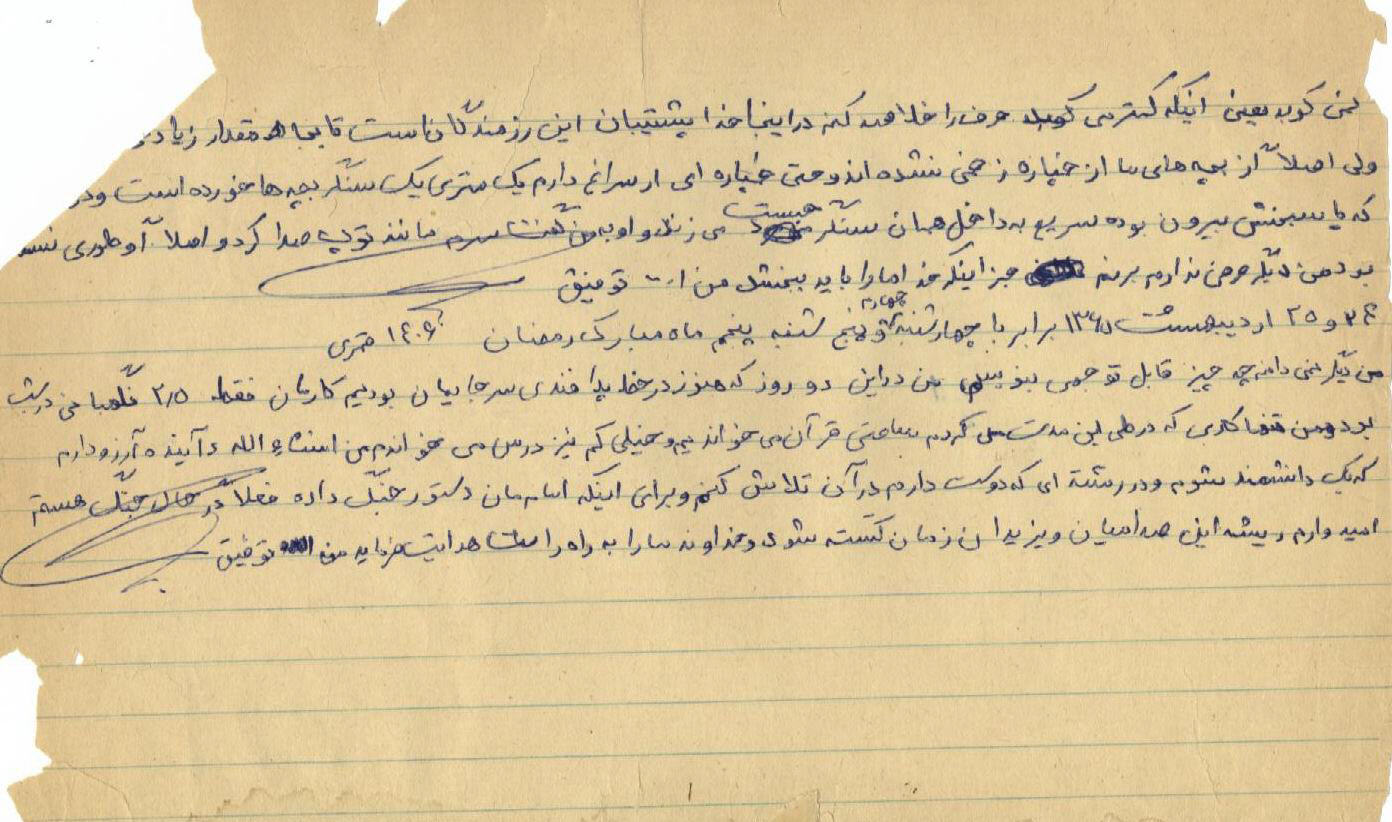 نمی کوبد یعنی اینکه کمتر می کوبد حرف را خلاصه کنم در اینجا خدا پشتیبان این رزمندگان است تا بحال مقدار زیادی
ولی اصلاً از بچه های ما از خپاره زخمی نشده اند و حتی خپاره ای ار سراغ دارم یک متری یک سنگر بچه ها خورده است و در
که پا سبخش بیرون بوده سریع به داخل همان سنگر هست می زند و او به من گفت سرم مانند توپ صدا کرد و اصلاً طوری نشده
بود من دیگر حرفی ندارم بزنم جز اینکه خدا ما را باید ببخشد من ا.. توفیق
۲۴ و ۲۵ اردیبهشت ۱۳۶۵ برابر با چهارشنبه و پنج شنبه چهارم و پنجم ماه مبارک رمضان ۱۴۰۶ قمری
من دیگر نمی دانم چه چیز قابل توجهی بنویسم من در این دو روز که هنوز در خط پدافندی سر جایمان بودیم کارمان فقط ۲/۵ نگهبانی در شب
بود و من تنها کاری که در طی این مدت می کردم ساعتی قرآن می خواندیم و خیلی کم نیز درس می خواندم من انشاء الله در آینده آرزو دارم
که یک دانشمند شوم و در رشته ای که دوست دارم در آن تلاش کنم و برای اینکه امام مان دستور جنگ داده فعلاً در حال جنگ هستم
امیدوارم ریشه این صدامیان و یزیدان زمان کنده شود و خداوند ما را به راه راست هدایت فرماید من الله توفیق